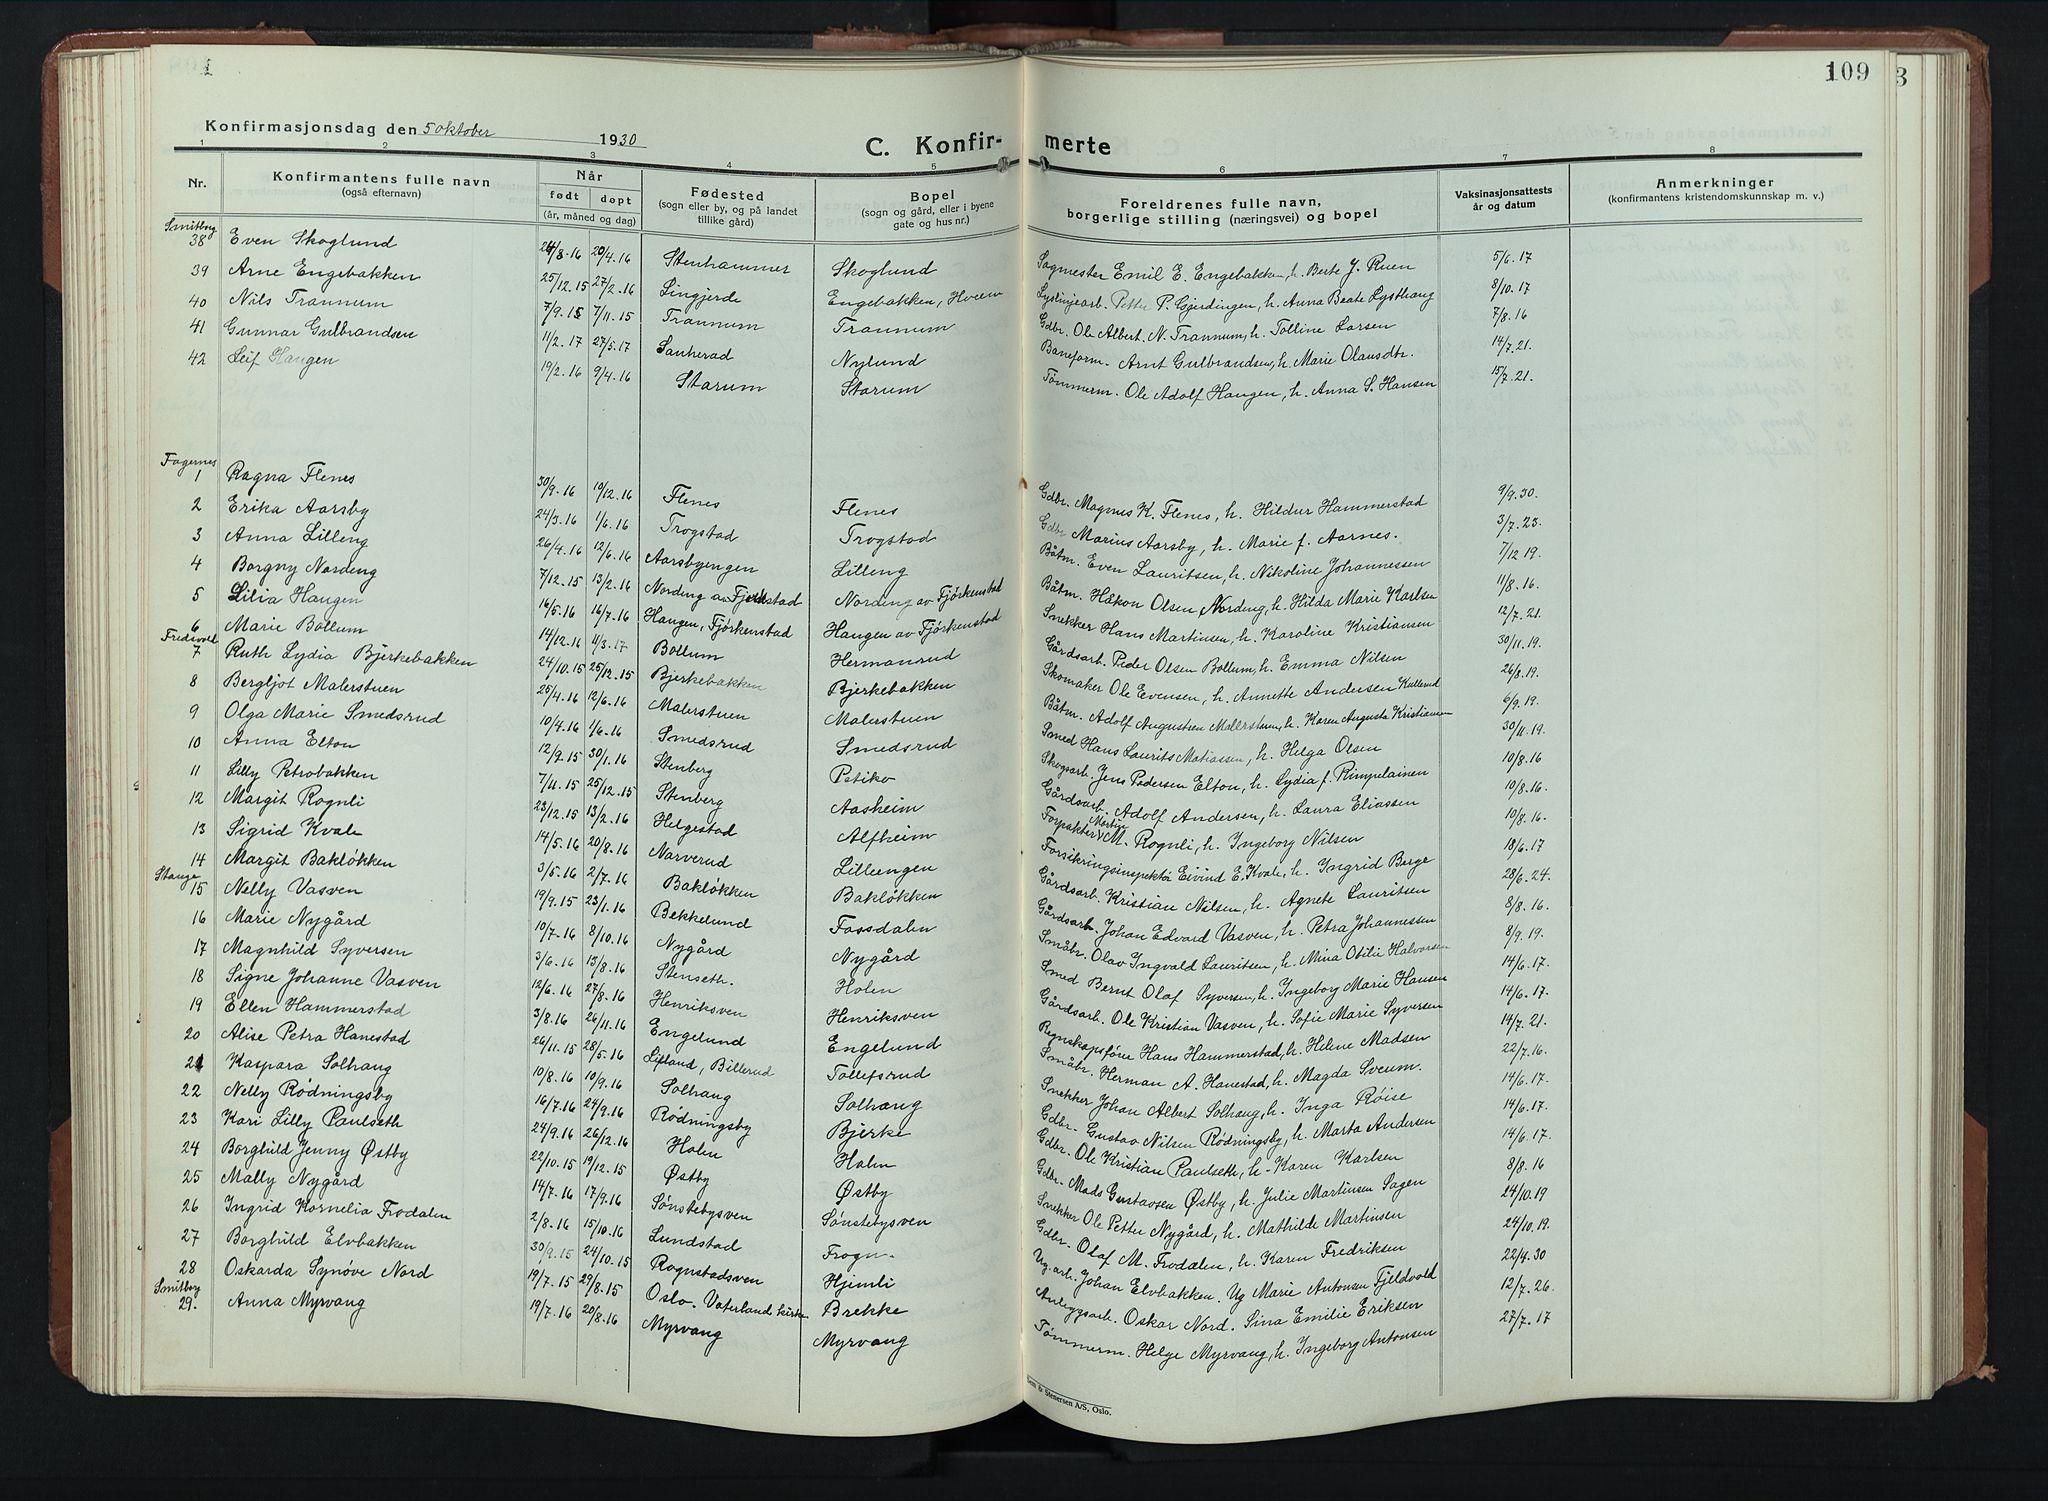 109
3
Konfirmasjonsdag den 5 oktober 1930
C. Konfir- merte
1 2 3 4 5 6 7 8
Nr. Konfirmantens fulle navn (også efternavn) Når født døpt (år, måned og dag) Fødested (sogn eller by, og på landet tillike gård) Bopel (sogn og gård, eller i byene gate og hus nr.) Foreldrenes fulle navn, borgerlige stilling (næringsvei) og bopel Vaksinasjonsattests år og datum Anmerkninger (konfirmantens kristendomskunnskap m. v.)
Smitborg
38 Even Skoglund 24/8.16 20/4.16 Stenhammer Skoglund Sagmester Emil E. Engebakken, h. Berte J. Ruen 5/6.17
39 Arne Engebakken 25/12.15 27/2.16 Lingjerde Engebakken, Hveem Lyslinjearb. Petter P. Gjerdingen, h. Anna Beate Lysthaug 8/10.17
40 Nils Trannum 7/9.15 7/11.15 Trannum Trannum Gdbr. Ole Albert N. Trannum, h. Tolline Larsen 7/8.16
41 Gunnar Gulbrandsen 11/2.17 27/5.17 Sauherad Nylund Baneform. Arnt Gulbrandsen, h. Marie Olausdtr. 14/7.21.
42 Leif Haugen 19/2.16 9/4.16 Starum Starum Tømmerm. Ole Adolf Haugen, h. Anna S. Hansen 15/7.21.
Fagernes
1 Ragna Flenes 30/9.16 19/12.16 Flenes Flenes Gdbr. Magnus K. Flenes, h. Hildur Hammerstad 9/9.30.
2 Erika Aarsby 24/3.16 1/6.16 Trogstad Trogstad Gdbr Marius Aarsby, h. Marie f. Aarnes. 3/7.23.
3 Anna Lilleng 26/4.16 12/6.16 Aarsbyengen Lilleng Båtm. Even Lauritsen, h. Nikoline Johannessen 7/12 19.
4 Borgny Nordeng 7/12.15 13/2.16 Nordeng av Fjørkenstad Nordeng av Fjørkenstad Båtm. Håkon Olsen Nordeng, h. Hilda Marie Karlsen 11/8.16.
5 Lilia Haugen 16/5.16 16/7.16 Haugen, Fjørkenstad Haugen av Fjørkenstad Snekker Hans Martinsen, h. Karoline Kristiansen 12/7.21.
6 Marie Bollum 14/12.16 4/3.17 Bollum Hermansrud Gårdsarb. Peder Olsen Bollum, h. Emma Nilsen 30/11.19.
Fredsvol
7 Ruth Lydia Bjerkebakken 24/10.15 25/12.15 Bjerkebakken Bjerkebakken Skomaker Ole Evensen, h. Annette Andersen Kullerud 26/8.19.
8 Bergljot Malerstuen 25/4.16 12/6.16 Malerstuen Malerstuen Båtm. Adolf Augustsen Malerstuen, h. Karen Augusta Kristiansen 6/9.19.
9 Olga Marie Smedsrud 10/4.16 1/6.16 Smedsrud Smedsrud Smed Hans Laurits Matiassen, h. Helga Olsen 30/11.19.
10 Anna Elton 12/9.15 30/1.16 Stenberg Petiko Skogsarb. Jens Pedersen Elton, h. Lydia f. Rimpelainen 10/8.16
11 Lilly Petrobakken 7/11.15 25/12.15 Stenberg Aasheim Gårdsarb. Adolf Andersen, h. Laura Eliassen 10/8.16.
12 Margit Rognli 23/12.15 13/2.16 Helgestad Alfheim Forpakter Martin M. Rognli, h. Ingeborg Nilsen 10/8.16.
13 Sigrid Kvale 14/5.16 20/8.16 Narverud Lilleengen Forsikringsinspektør Eivind E. Kvale, h. Ingrid Berge 18/6.17
14 Margit Bakløkken 3/5.16 2/7.16 Bakløkken Bakløkken Gårdsarb. Kristian Nilsen, h. Agnete Lauritsen 28/6.24.
Stange
15 Nelly Vasven 19/9.15 23/1.16 Bekkelund Fossdalen Gårdsarb. Johan Edvard Vasven, h. Petra Johannessen 8/8.16.
16 Marie Nygård 10/7.16 8/10.16 Nygård Nygård Småbr. Olav Ingvald Lauritsen, h. Mina Otilie Halvorsen 8/9.19.
17 Magnhild Syversen 3/6.16 13/8.16 Stenseth. Holen Smed Bernt Olaf Syversen, h. Ingeborg Marie Hansen 14/6.17.
18 Signe Johanne Vasven 12/6.16 27/8.16 Henriksven Henriksven Gårdsarb. Ole Kristian Vasven, h. Sofie Marie Syversen 14/6.17.
19 Ellen Hammerstad 3/8.16 26/11.16 Engelund Engelund Regnskapsfører Hans Hammerstad, h. Helene Madsen 14/7.21.
20 Alise Petra Hanestad 26/11.15 28/5.16 Lifland, Billerud Tollefsrud Småbr. Herman A. Hanestad, h. Magda Sveum. 22/7.16.
21 Kaspara Solhaug 10/8.16 10/9.16 Solhaug Solhaug Snekker Johan Albert Solhaug, h. Inga Røise 14/6.17.
22 Nelly Rødningsby 16/7.16 24/9.16 Rødningsby Bjerke Gdbr. Gustav Nilsen Rødningsby, h. Marta Andersen 14/6.17.
23 Kari Lilly Paulseth 24/9.16 26/12.16 Holen Holen Gdbr. Ole Kristian Paulseth, h. Karen Karlsen 14/6.17.
24 Borghild Jenny Østby 22/10.15 19/12.15 Østby Østby Gdbr. Mads Gustavsen Østby, h. Julie Martinsen Sagen 8/8.16
25 Mally Nygård 14/7.16 17/9.16 Sønstebysven Sønstebysven Snekker Ole Petter Nygård, h. Mathilde Martinsen 24/10.19
26 Ingrid Kornelia Frodalen 2/8.16 15/10.16 Lundstad Frogn. Gdbr. Olaf M. Frodalen, h. Karen Fredriksen 24/10.19.
27 Borghild Elvbakken 30/9.15 24/10.15 Rognstadsven Hjimli Ug. arb. Johan Elvbakken. Ug Marie Antonsen Fjeldvold 22/4.30
28 Oskarda Synøve Nord 19/7.15 29/8.15 Oslo. Vaterland kirke Brekke Anleggsarb. Oskar Nord. Sina Emilie Eriksen 12/7.26.
Smitborg
29. Anna Myrvang 19/7.16 20/8.16 Myrvang Myrvang Tømmerm. Helge Myrvang, h. Ingeborg Antonsen 27/7.17
Sem & Stenersen A/S, Oslo.